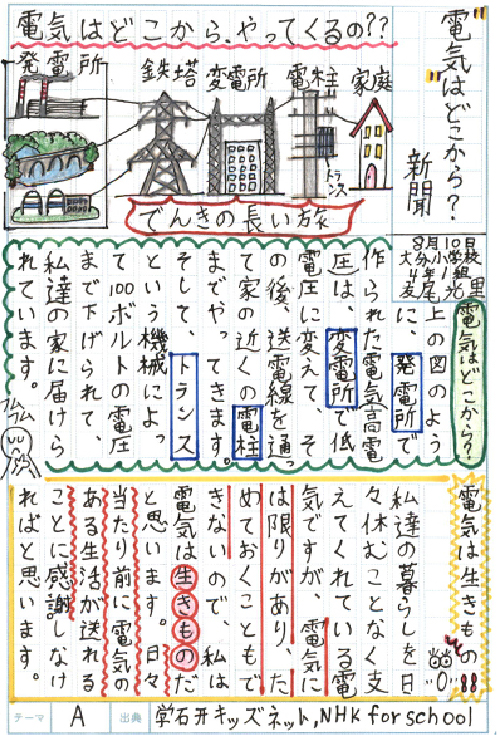 電気はどこから?
新聞
電気はどこから、やってくるの??
発電所 鉄塔 変電所 電柱 家庭
トランス
でんきの長い旅
8月10日
電気はどこから?
上の図のよう
に、発電所で
作られた電気高電
圧は、変電所で低
電圧に変えて、そ
の後、送電線を通っ
て家の近くの電柱
までやってきます。
そして、トランス
という機械によっ
て100ボルトの電圧
まで下げられて、
私達の家に届けら
れています。
フムフム
電気は生きもの!!
私達の暮らしを日
々休むことなく支
えてくれている電
気ですが、電気に
は限りがあり、た
めておくこともで
きないので、私は
電気は生きものだ
と思います。日々
当たり前に電気の
ある生活が送れる
ことに感謝しなけ
ればと思います。
テーマ A 出典 学研キッズネット,NHK for school